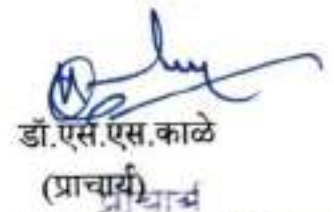 डॉ.एस.एस.काळे
(प्राचार्य)
प्राचार्य